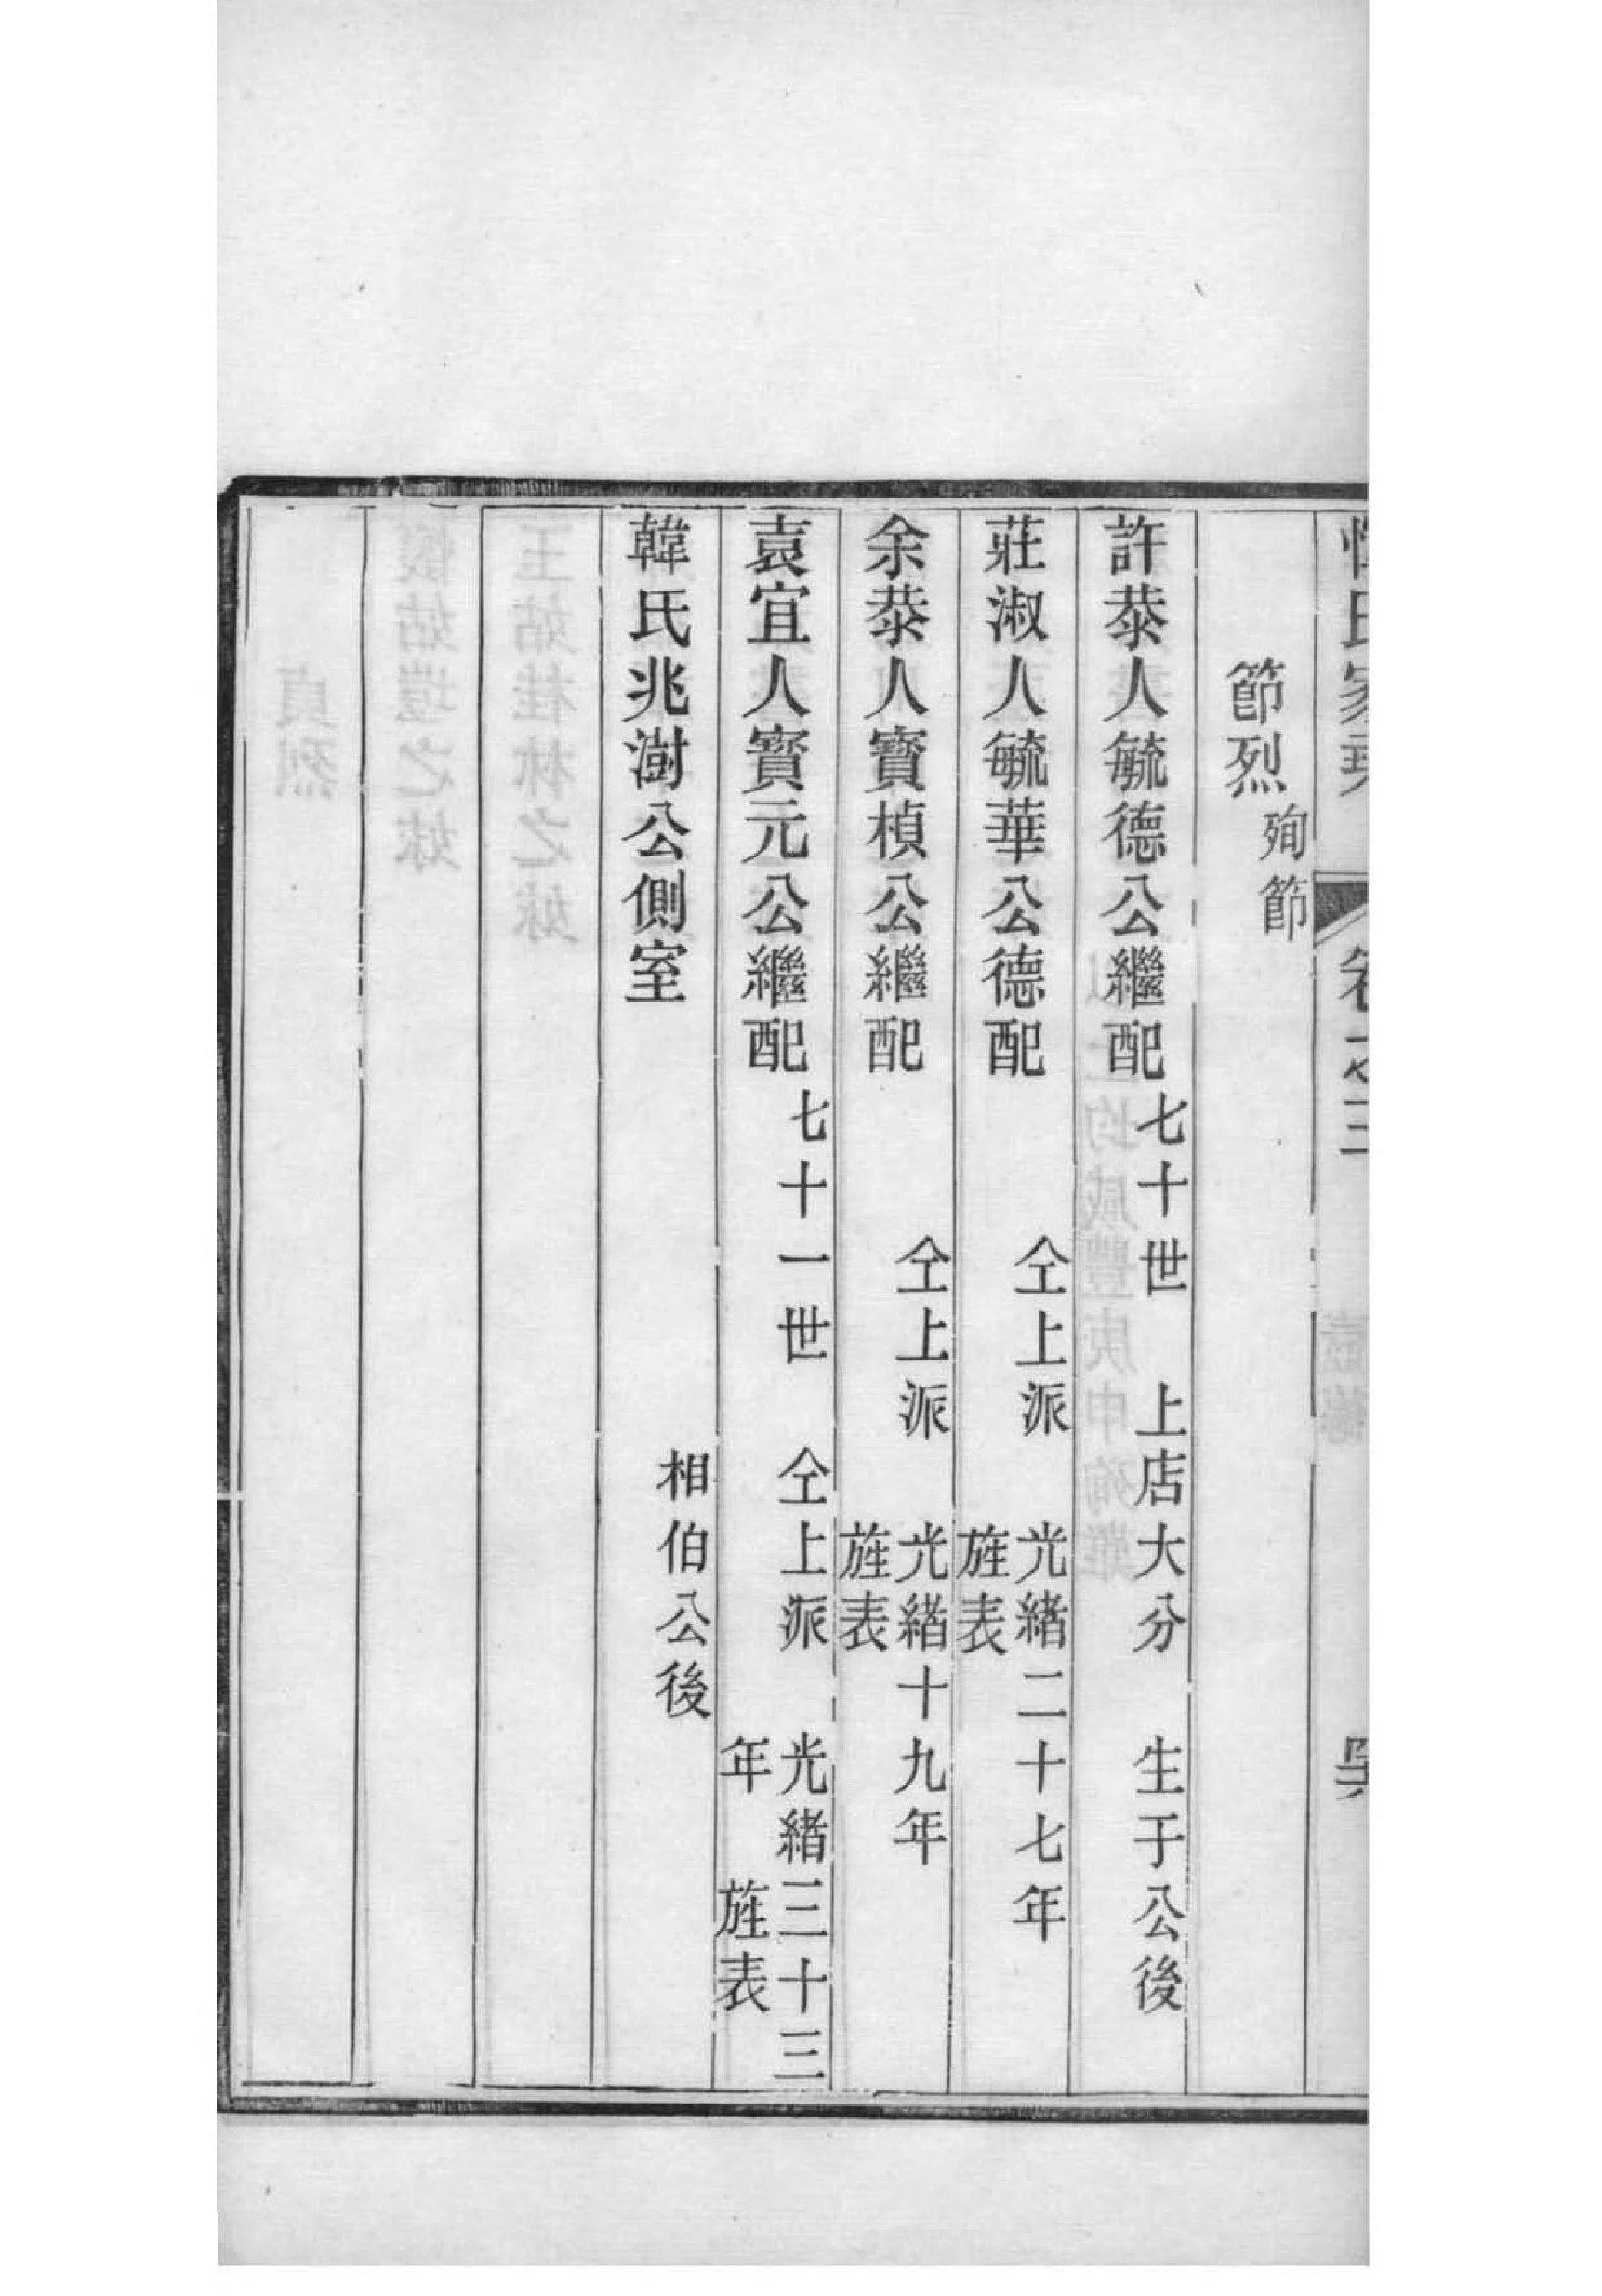 氏家卷之三
節烈殉節
許恭人毓德公繼配七十世 上店大分 生于公後
莊淑人毓華公德配 仝上派 光緒二十七年旌表
余恭人寶楨公繼配 仝上派 光緒十九年旌表
袁宜人寶元公繼配七十一世 仝上派 光緒三十三年 旌表
韓氏兆澍公側室 相伯公後